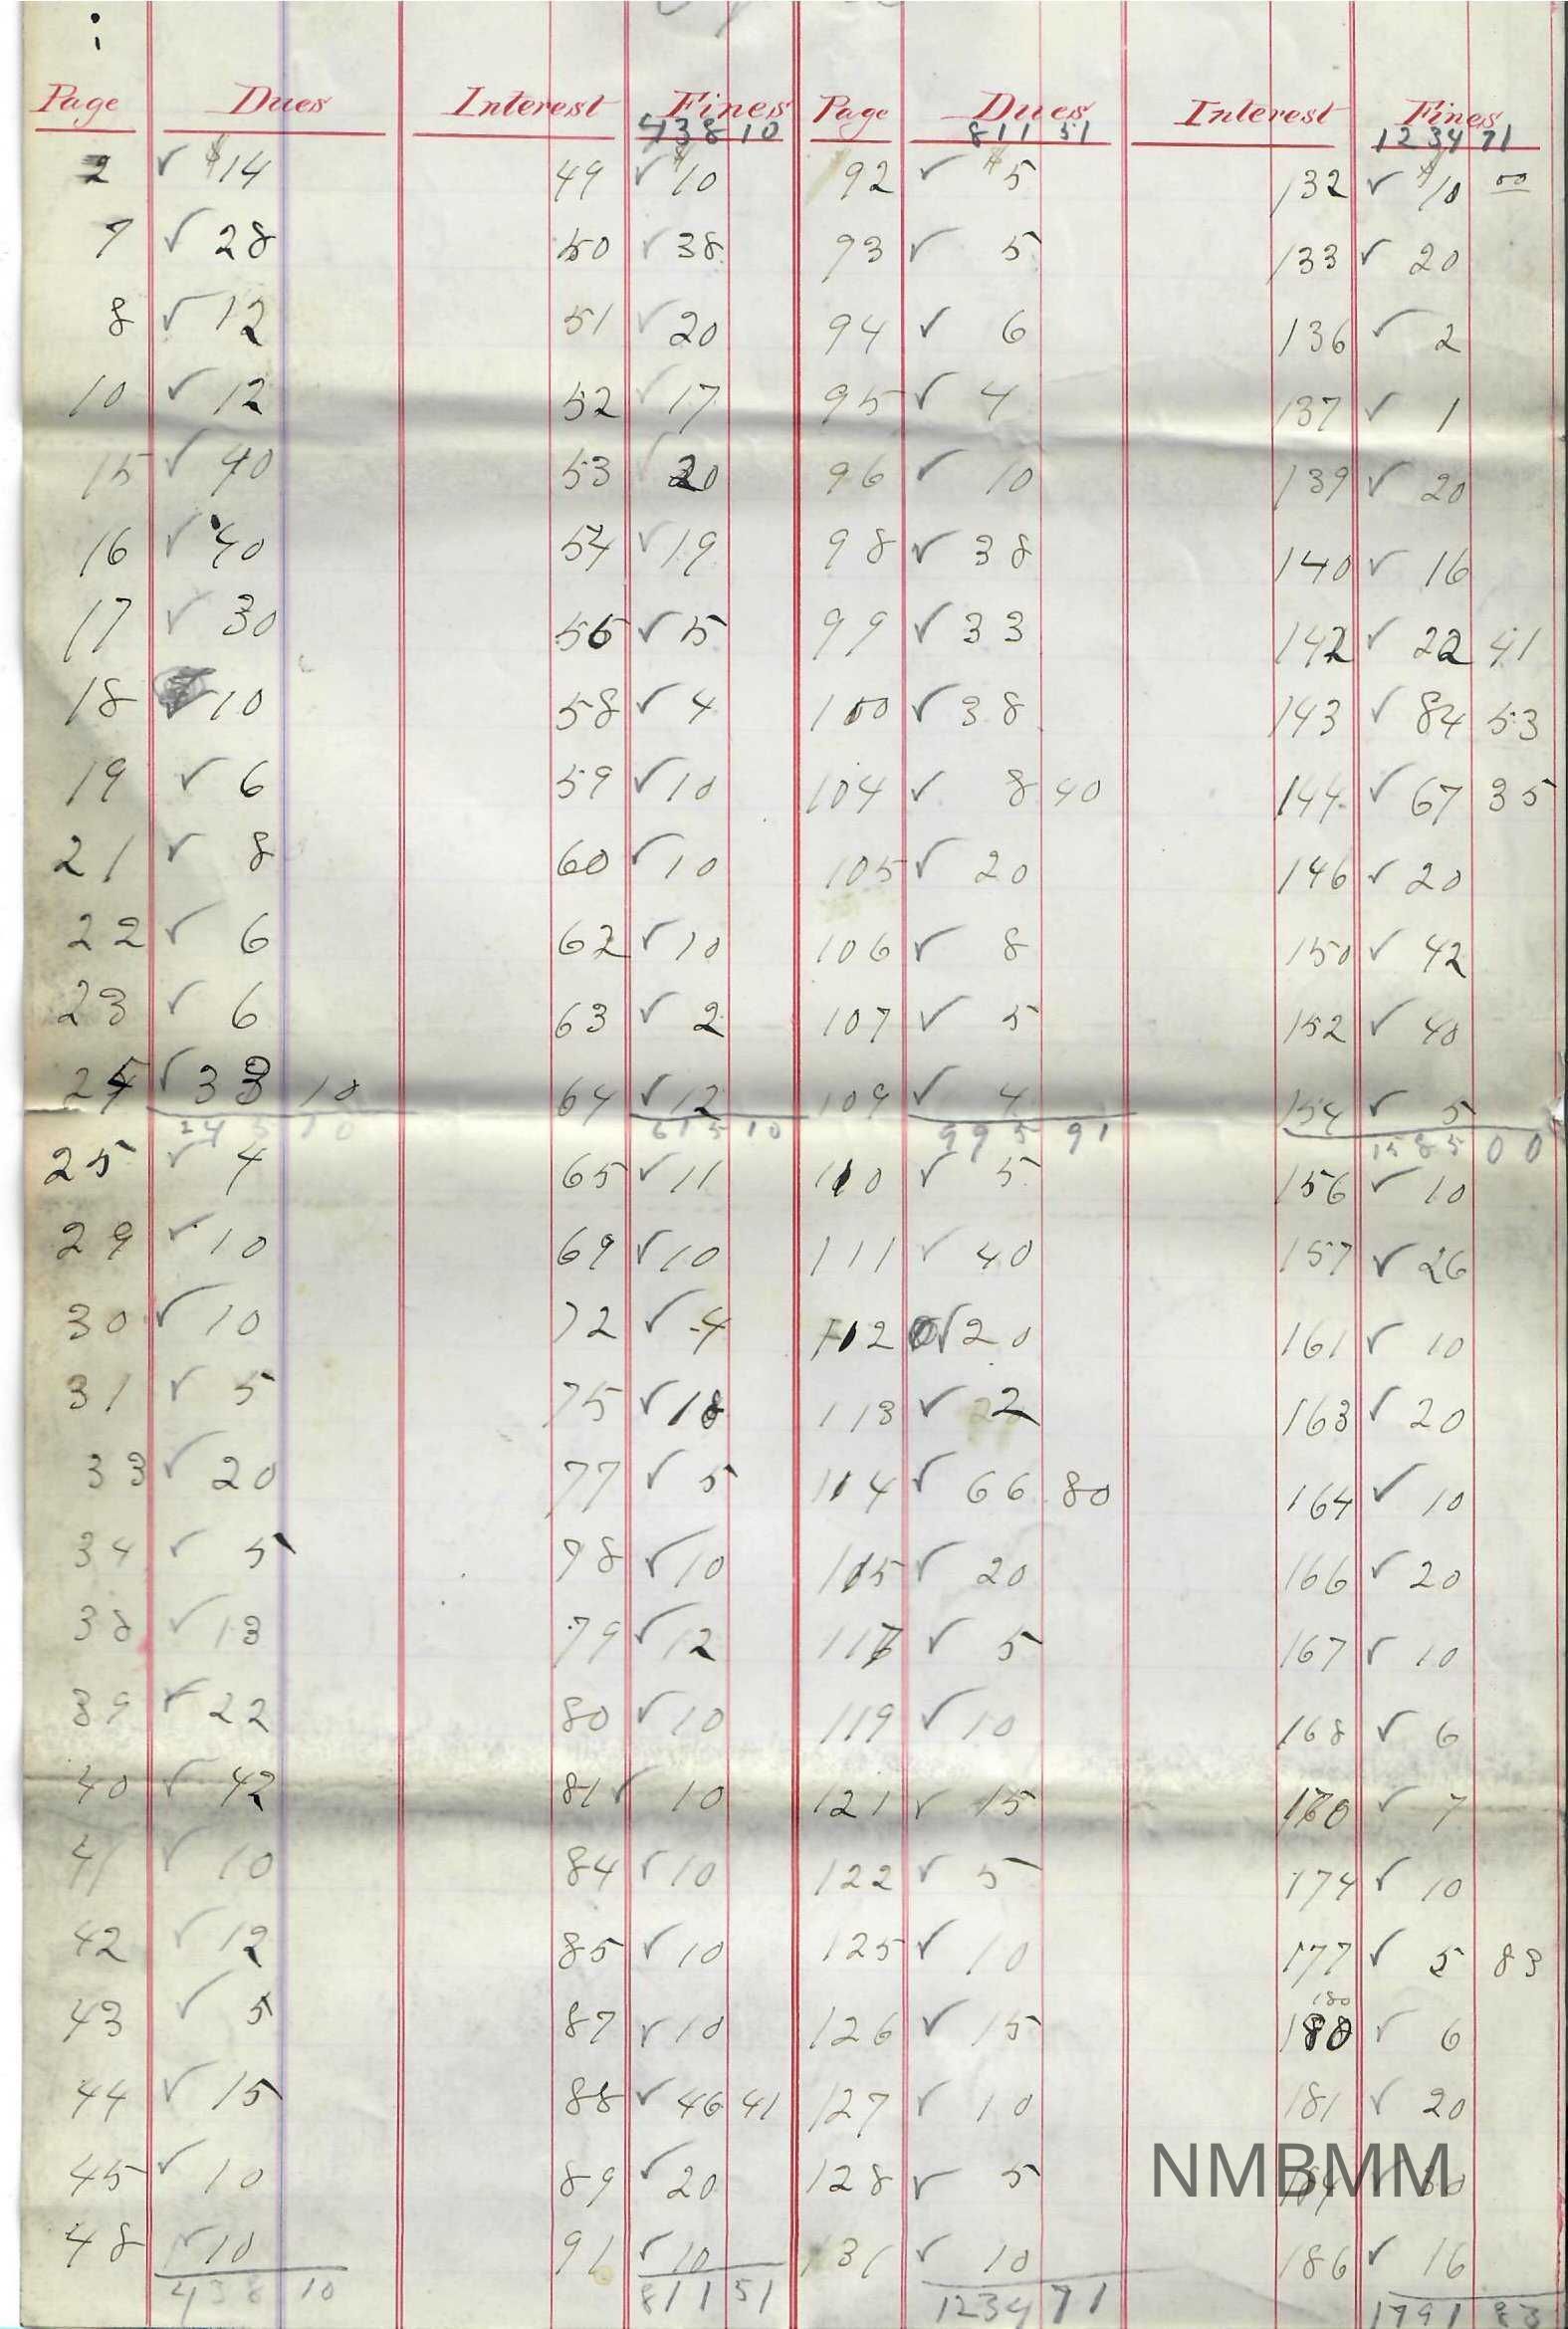 Page Dues Interest Fines Page Dues Interest Fines
438 10 811 51 1234 71
2 ✓ $14 49 ✓ $10 92 ✓ $5 132 ✓ $10 00
7 ✓ 28 50 ✓ 38 93 ✓ 5 133 ✓ 20
8 ✓ 12 51 ✓ 20 94 ✓ 6 136 ✓ 2
10 ✓ 12 52 ✓ 17 95 ✓ 4 137 ✓ 1
15 ✓ 40 53 ✓ 20 96 ✓ 10 139 ✓ 20
16 ✓ 40 54 ✓ 19 98 ✓ 38 140 ✓ 16
17 ✓ 30 56 ✓ 5 99 ✓ 33 142 ✓ 22 41
18 ✓ 10 58 ✓ 4 100 ✓ 38 143 ✓ 84 53
19 ✓ 6 59 ✓ 10 104 ✓ 8 40 144 ✓ 67 35
21 ✓ 8 60 ✓ 10 105 ✓ 20 146 ✓ 20
22 ✓ 6 62 ✓ 10 106 ✓ 8 150 ✓ 42
23 ✓ 6 63 ✓ 2 107 ✓ 5 152 ✓ 40
24 ✓ 33 10 64 ✓ 12 109 ✓ 4 154 ✓ 5
245 10 615 10 995 91 1585 00
25 ✓ 4 65 ✓ 11 110 ✓ 5 156 ✓ 10
29 ✓ 10 69 ✓ 10 111 ✓ 40 157 ✓ 26
30 ✓ 10 72 ✓ 4 112 ✓ 20 161 ✓ 10
31 ✓ 5 75 ✓ 18 113 ✓ 22 163 ✓ 20
33 ✓ 20 77 ✓ 5 114 ✓ 66 80 164 ✓ 10
34 ✓ 5 78 ✓ 10 115 ✓ 20 166 ✓ 20
38 ✓ 13 79 ✓ 12 116 ✓ 5 167 ✓ 10
39 ✓ 22 80 ✓ 10 119 ✓ 10 168 ✓ 6
40 ✓ 42 81 ✓ 10 121 ✓ 15 170 ✓ 7
41 ✓ 10 84 ✓ 10 122 ✓ 5 174 ✓ 10
42 ✓ 12 85 ✓ 10 125 ✓ 10 177 ✓ 5 83
180
43 ✓ 5 87 ✓ 10 126 ✓ 15 180 ✓ 6
44 ✓ 15 88 ✓ 46 41 127 ✓ 10 181 ✓ 20
45 ✓ 10 89 ✓ 20 128 ✓ 5
NMBMM
48 ✓ 10 91 ✓ 10 131 ✓ 10 186 ✓ 16
438 10 811 51 1234 71 1791 83